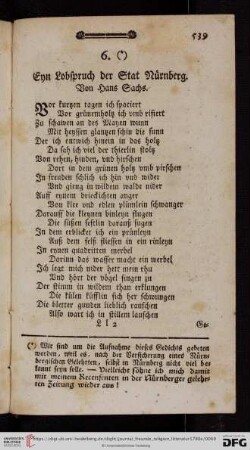 539
6. (*)
Eyn Lobspruch der Stat Nürnberg.
Von Hans Sachs.
Vor kurtzen tagen ich spaciert
Vor grünemholtz ich vmb rifiert
Zu schawen an des Mayen wunn
Mit heyssen glantzen schin die sunn
Der ich entwich hinein in das holtz
Da sah ich viel der thierlin stoltz
Von rehen, hinden, vnd hirschen
Dort in dem grünen holtz vmb pirschen
In freuden schlich ich hin vnd wider
Vnd gieng in wildem walde nider
Auff eynem wiselichten anger
Von klee vnd edlen plümlein schwanger
Darauff die kleynen binleyn flugen
Die süssen sefftlin daraus sugen
In dem erblicket ich ein prünnleyn
Auß dem felß fliessen in ein rünleyn
In eynen quadritten merbel
Darinn das wasser macht ein werbel
Ich legt mich nider hett mein rhu
Vnd hört der vögel singen zu
Der stimm in wildem than erklungen
Die külen lüfftlin sich her schwungen
Die bletter gunden lieblich rauschen
Also wart ich in stillem lauschen
L l 2
(*) Wir sind um die Aufnahme dieses Gedichts gebeten
worden, weil es, nach der Versicherung eines Nürn-
bergischen Gelehrten, selbst in Nürnberg nicht viel be-
kannt seyn solle. — Vielleicht söhne ich mich damit
mit meinem Recensenten in der Nürnberger gelehr-
ten Zeitung wieder aus!